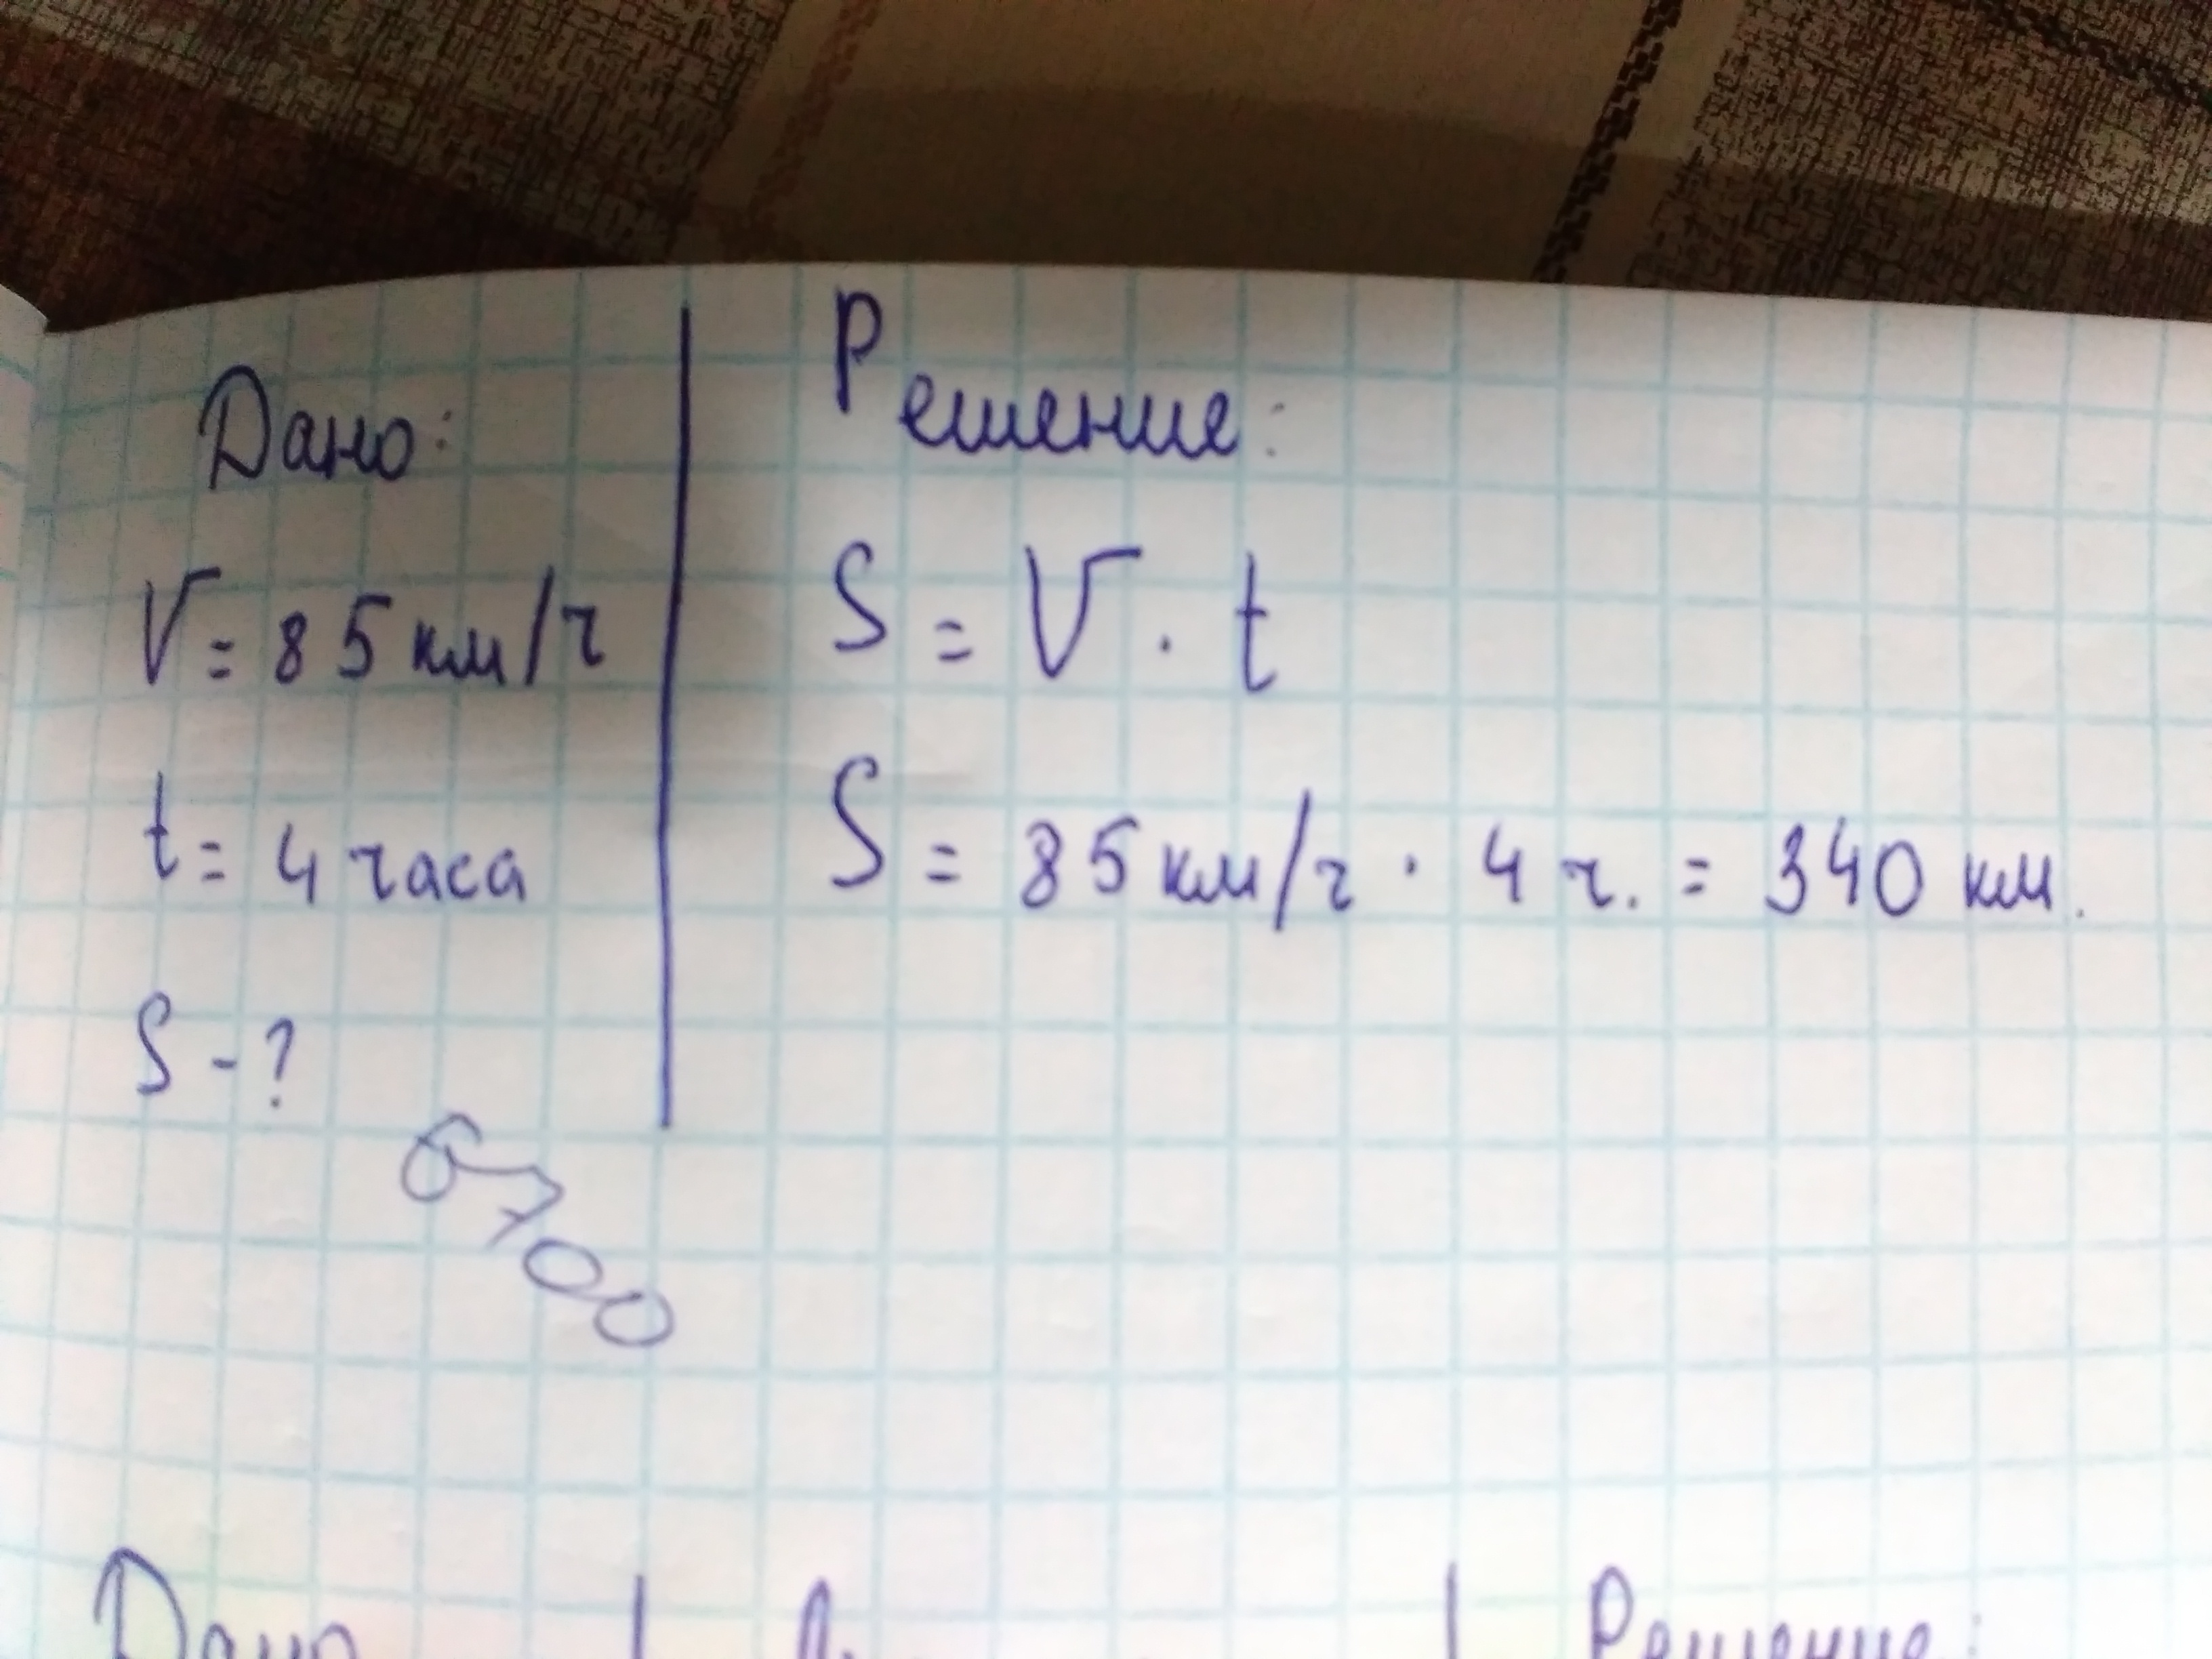 Дано:
V = 85 км/ч
t = 4 часа
S - ?
Решение:
S = V · t
S = 85 км/ч · 4 ч. = 340 км.
Дано
Решение: